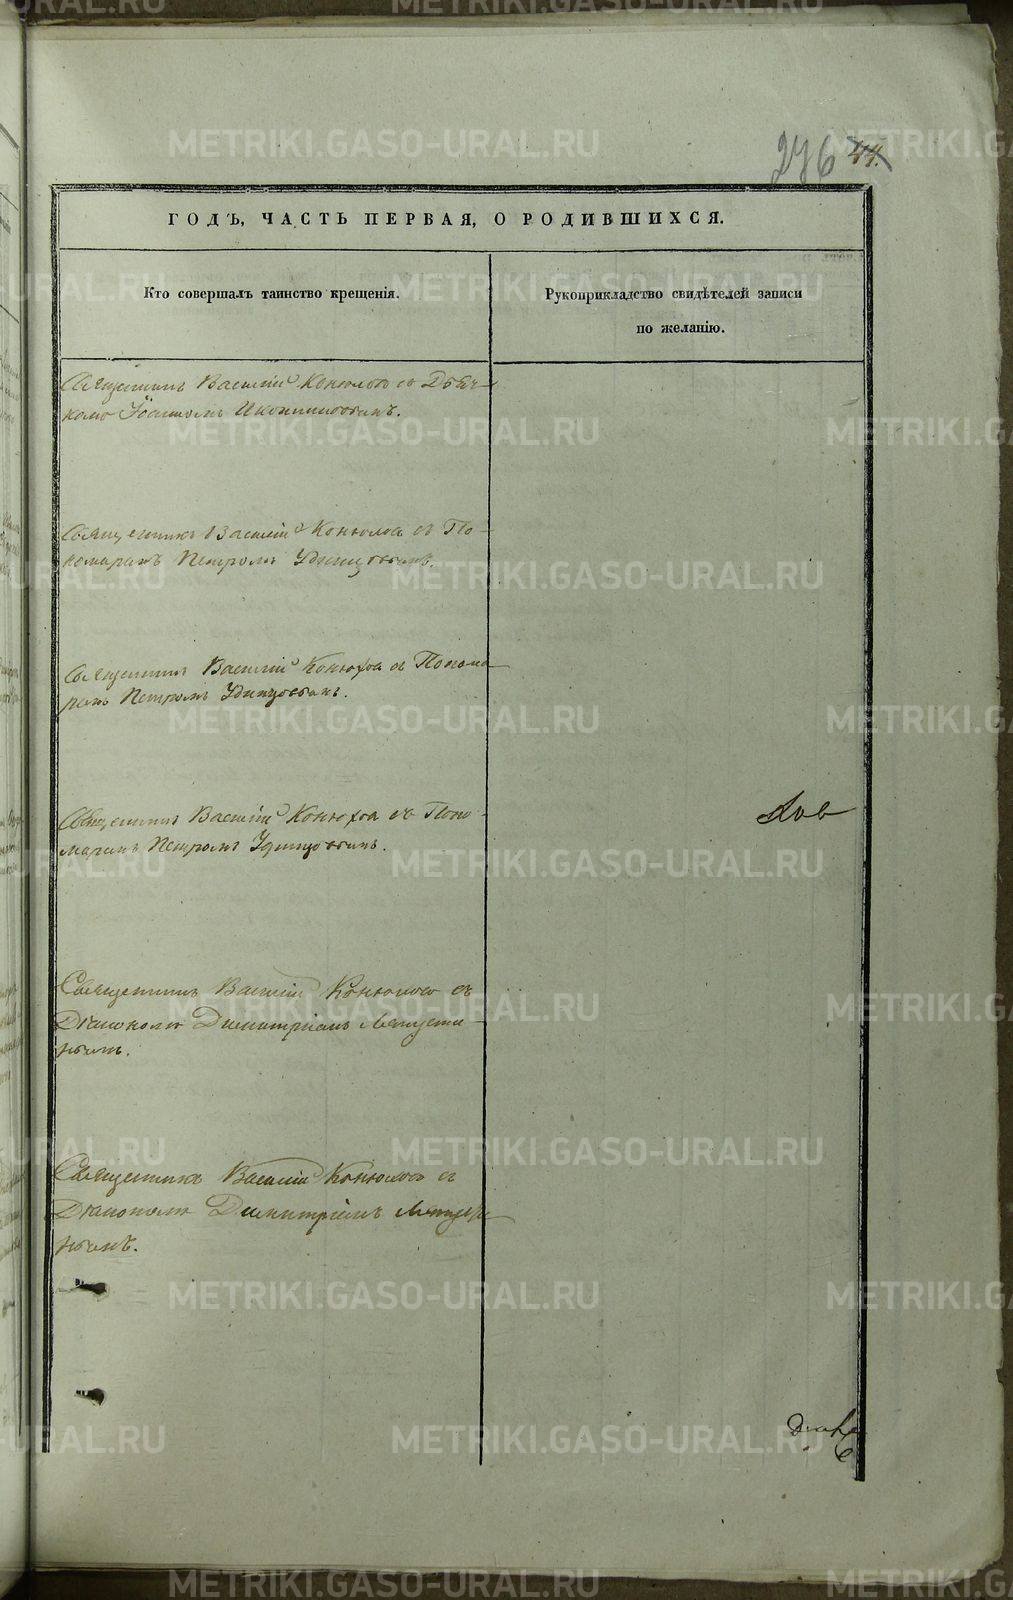 276 44.
ГОДЪ, ЧАСТЬ ПЕРВАЯ, О РОДИВШИХСЯ.
Кто совершалъ таинство крещенія.
Рукоприкладство свидѣтелей записи
по желанію.
Священникъ Василій Конюховъ съ Дьяч-
комъ Іоанномъ Иконниковымъ.
Священникъ Василій Конюховъ съ По-
номаремъ Петромъ Удинцовымъ.
Священникъ Василій Конюховъ съ Понома
ремъ Петромъ Удинцовымъ.
Священникъ Василій Конюховъ съ Поно-
маремъ Петромъ Удинцовымъ.
Священникъ Василій Конюховъ съ
Діакономъ Димитріемъ
Священникъ Василій Конюховъ съ
Діакономъ Димитріемъ
METRIKI.GASO-URAL.RU